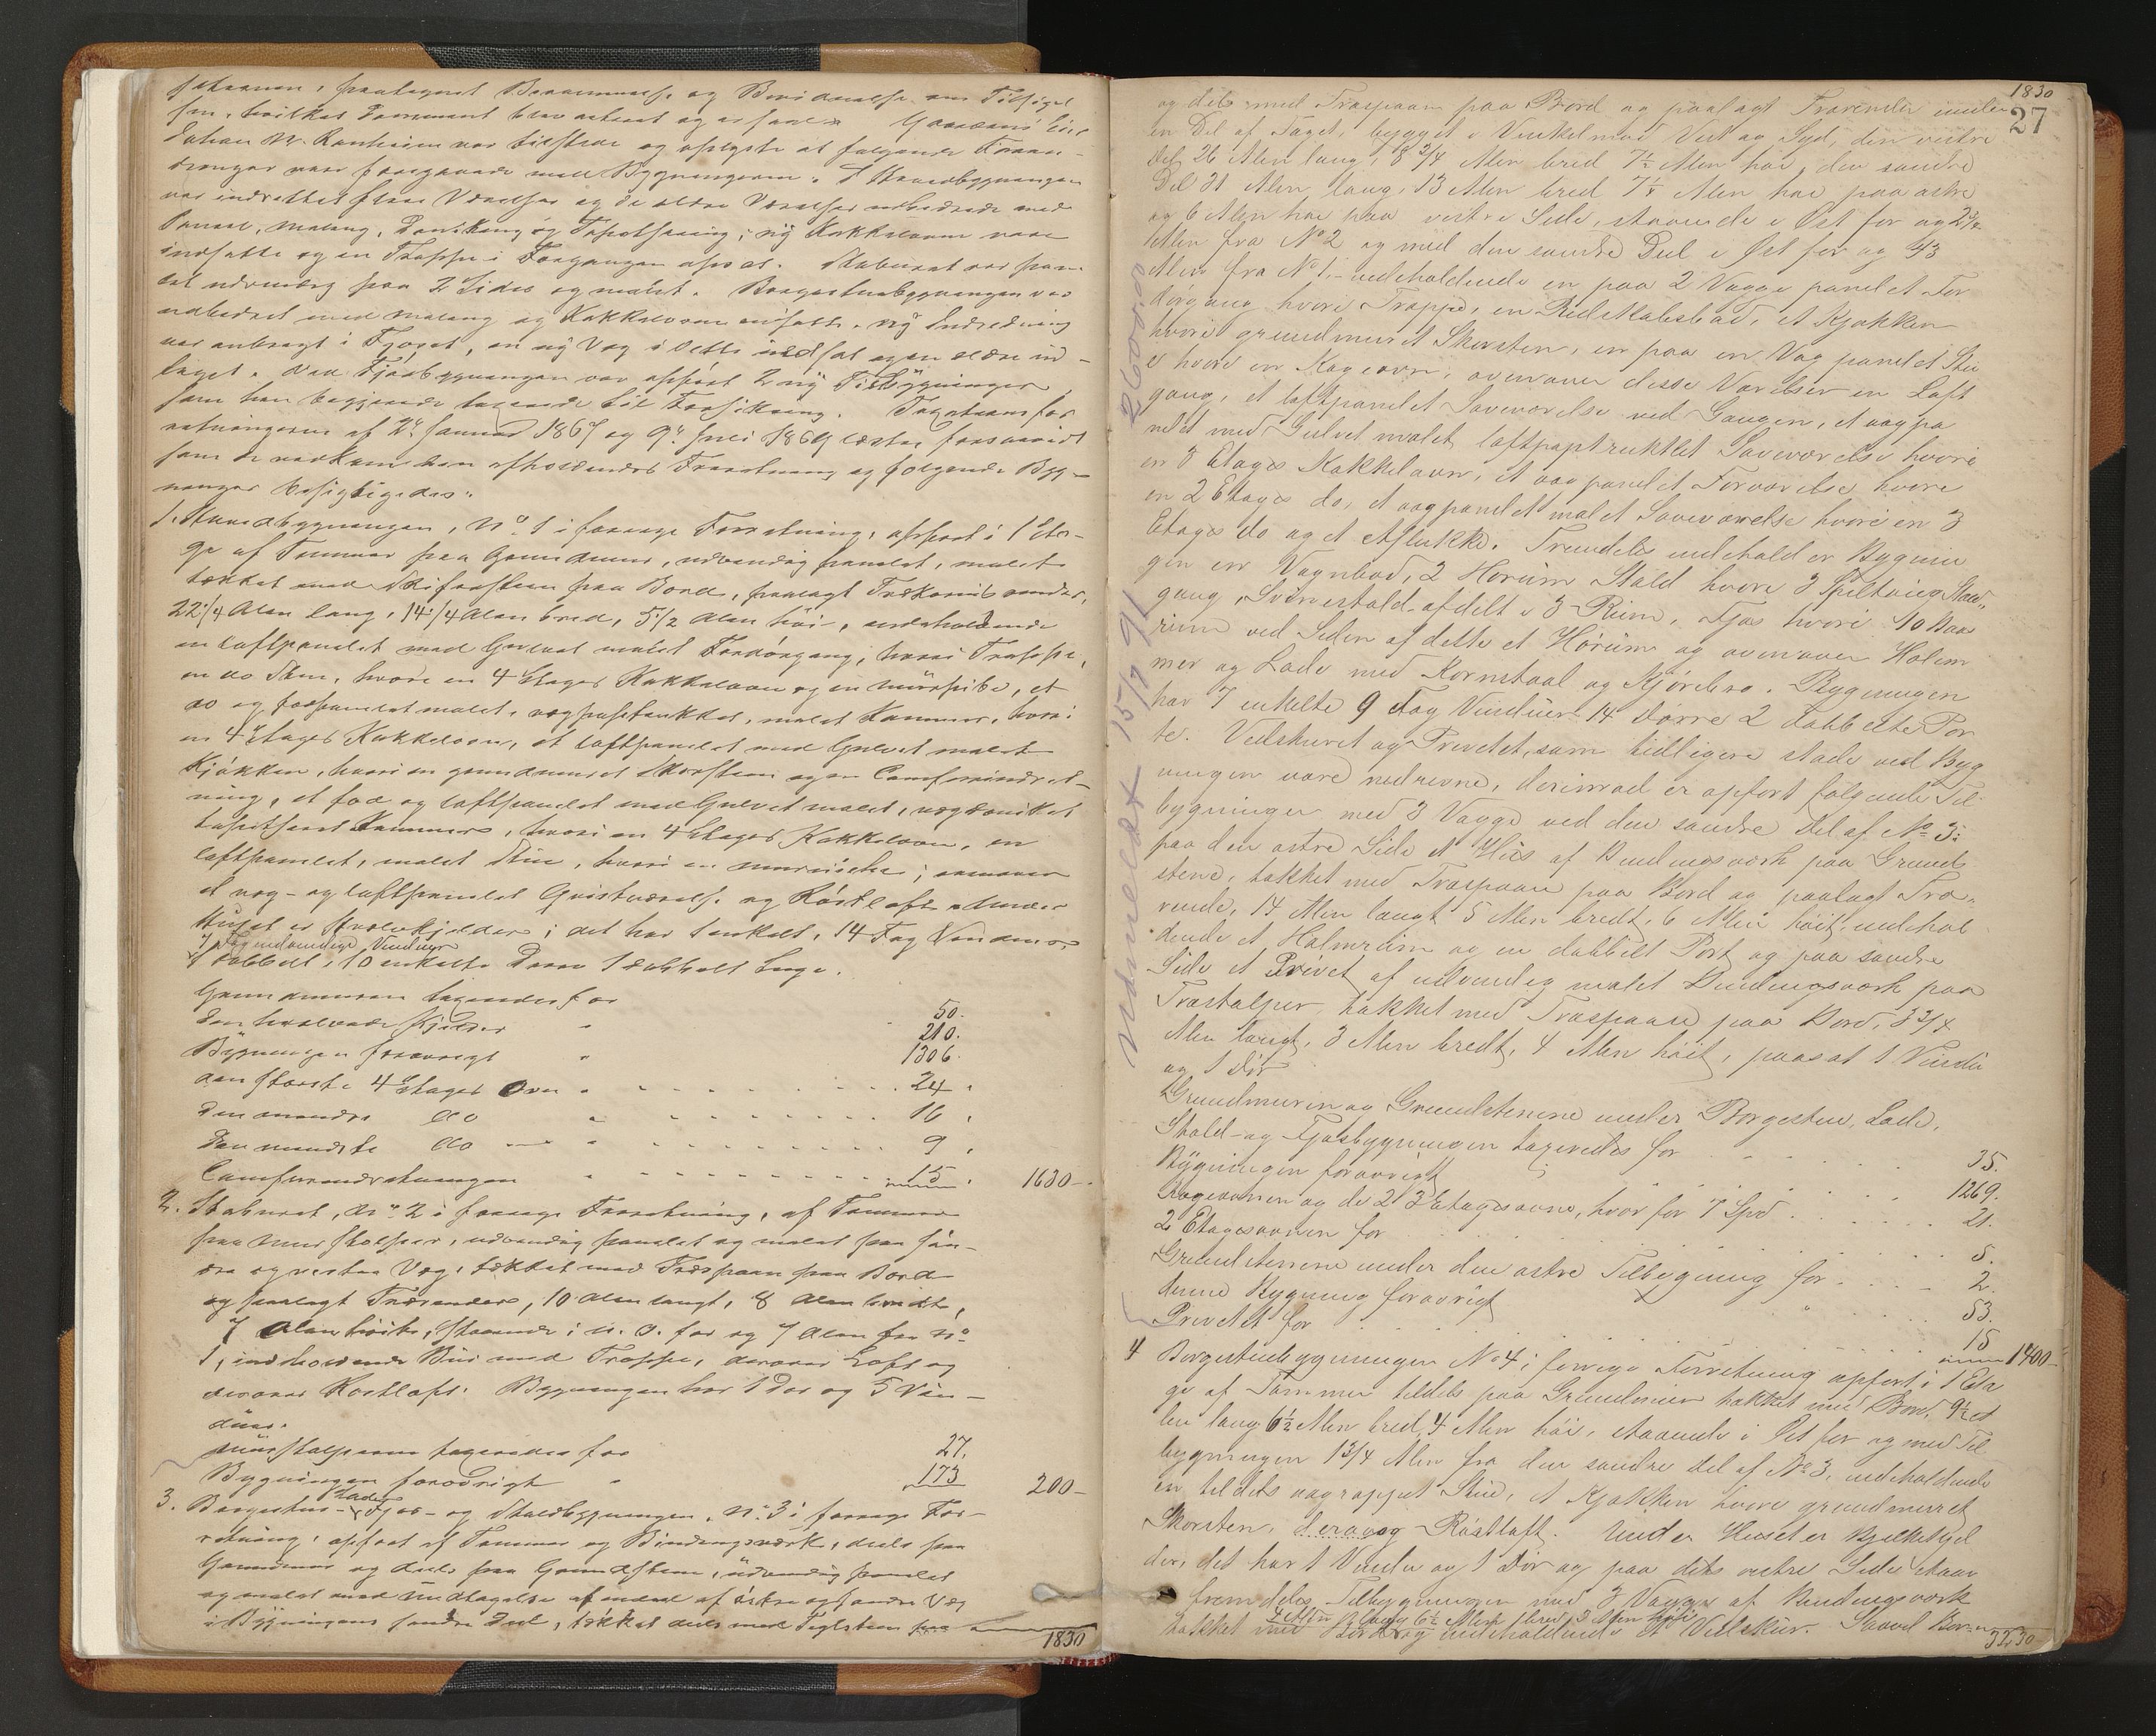 fuldtagent Beraammelse og Bevidnelse om Tilsigel
sen, hvilket Document blev
Johan M. Ranheim var tilstede og oplyste at følgende Foran-
dringer vare foregaaede med Bygningerne. I Hovedbygningen
var indrettet flere Værelser og de ældre Værelser udbedrede med
Panel, Maling, og ny Kakkelovne vare
indsatte og en Trappe i Forgangen opsat. Staburet var pane
let udvendig paa 2 Sider og malet. Borgestuebygningen var
udbedret med Maling og Kakkelovne indsatte, ny Indredning
var anbragt i Fjøset, en ny Væg i dette indsat og en ældre ud-
taget. Ved Fjøsbygningen var opført 2 ny Tilbygninger
som han begjærede taxerede til Forsikring. Taxationsfor
retningerne af 2de Januar 1867 og 9de Juli 1869 læstes forsaavidt
som de vedkom den afholdendes Forretning og følgende Byg-
ninger besigtigedes:
1. Hovedbygningen, No 1 i forrige Forretning, opført i 1 Eta-
ge af Tømmer paa Grundmur, udvendig panelet, malet
tækket med Skifersten paa Bord, paalagt Trækornisrender,
22 1/4 Alen lang, 14 1/4 Alen bred, 5 1/2 Alen høi, indeholdende
en loftpanelet med Gulvet malet Fordørgang, hvori Trappe,
en do Stue, hvori en 4 Etages Kakkelovn og en Murpibe, et
do og forpanelet malet, vægpaptrukket, malet Kammer, hvori
en 4 Etages Kakkelovn, et loftpanelet med Gulvet malet
Kjøkken, hvori en grundmuret Skorsten og en Comfurindret-
ning, et for og loftpanelet med Gulvet malet,
tapetseret Kammer, hvori en 4 Etages Kakkelovn, en
loftpanelet, malet Stue, hvori en ; ovenover
et væg- og loftpanelet Qvistværelse og Røstloft. Under
Huset er Hvælvkjelder; det har 1 enkelt, 14 Fag Vinduer
7 Fag indvendige Vinduer
1 dobbelt, 10 enkelte Døre 1 dobbelt Luge.
Grundmuren taxeredes for 50.
den hvælvede Kjelder " 210.
Bygningen forøvrigt " 1306.
den største 4 Etages Ovn " 24.
den mindre do " 16.
den mindste do " 9.
Comfurindretningen " 15. 1630
2. Staburet, No 2 i forrige Forretning, af Tømmer
paa Murstolper, udvendig panelet og malet paa søn-
dre og vestre Væg, tækket med Træspaan paa Bord
og paalagt Trærender, 10 Alen langt, 8 Alen bredt,
7 Alen høit, staaende i N. O. for og 7 Alen fra No
1, indeholdende Bur med Trappe, derover Loft og
derover Røstloft. Bygningen har 1 Dør og 5 Vin-
duer.
Murstolperne taxeredes for 27.
Bygningen forøvrigt " 173 200
3. Borgestue- Lade, Fjøs- og Staldbygningen, No 3 i forrige For-
retning, opført af Tømmer og Bindingsværk, dels paa
Grundmur og dels paa Grundstene, udvendig panelet
og malet med Undtagelse af endel af østre og søndre Væg
i Bygningens søndre Del, tækket dels med Teglsten paa
1830
1830
27
og dels med Træspaan paa Bord og paalagt Trærender under
en Del af Taget, bygget i Vinkel mod Vest og Syd, den vestre
Del 26 Alen lang, 8 3/4 Alen bred 7 1/2 Alen høi, den søndre
Del 31 Alen lang, 13 Alen bred 7 1/2 Alen høi paa østre
og 6 Alen høi paa vestre Side, staaende i Øst for og
Alen fra No 2 og med den søndre Del i Øst for og 43
Alen fra No 1, indeholdende en paa 2 Vægge panelet For
dørgang hvori Trappe, en Redskabsbod, et Kjøkken
hvori grundmuret Skorsten, en paa en Væg panelet Stu
e hvori en Kogeovn, ovenover disse Værelser en Loft
gang, et loftpanelet Soveværelse ved Gangen, et vægpa
nelet med Gulvet malet loftpaptrukket Soveværelse hvori
en 3 Etages Kakkelovn, et vægpanelet Forværelse hvori
en 2 Etages do, et vægpanelet malet Soveværelse hvori en 3
Etages do og et Aflukke. Fremdeles indeholder Bygnin
gen en Vognbod, 2 Hørum Stald hvori 3 Spiltoug
gang, Svinestald afdelt i 3 Rum, Fjøs hvori 10 Baas
rum ved Siden af dette et Hørum og ovenover Halm
mer og Lade med Kornstaal og Kjørebro. Bygningen
har 7 enkelte 9 Fag Vinduer 14 Døre 2 dobbelte Por
te. Vedskuret og Privetet, som tidligere stode ved Byg
ningen vare nedrevne, derimod er opført følgende Til
bygninger med 3 Vægge ved den søndre Del af No 3:
paa den østre Side et Hus af Bindingsværk paa Grund
stene, tækket med Træspaan paa Bord og paalagt Træ-
rende, 14 Alen langt 5 Alen bredt, 6 Alen høit, indehol
dende et Halmrum og en dobbelt Port og paa søndre
Side et Privet af udvendig malet Bindingsværk paa
Træstolper, tækket med Træspaan paa Bord, 3 3/4
Alen langt, 3 Alen bredt, 4 Alen høit, paasat 1 Vindu
og 1 Dør
Grundmuren og Grundstenene under Borgestue, Lade,
Stald- og Fjøsbygningen taxeredes for 35.
Bygningen forøvrigt 1269.
Kogeovnen og de 2 3 Etagesovne, hver for 7 Spd 21.
2 Etagesovnen for 5.
Grundstenene under den østre Tilbygning for 2.
denne Bygning forøvrigt " 53.
Privetet for 15 1400
4 Borgestuebygningen No 4 i forrige Forretning opført i 1 Eta
ge af Tømmer tildels paa Grundmur tækket med Bord, 9 1/2 A
len lang 6 1/2 Alen bred, 4 Alen høi, staaende i Øst for og med Til
bygningen 1 3/4 Alen fra den søndre Del af No 3, indeholdende
en tildels vægrappet Stue, et Kjøkken hvori grundmuret
Skorsten, derover Røstloft. Under Huset er Bjelkekjel
der, det har 1 Vindu og 1 Dør og paa dets vestre Side staar
fremdeles Tilbygningen med 3 Vægge af Bindingsværk
4 Alen lang 6 1/2 Alen bred 3 Alen høi
tækket med Bord og indeholdende et Vedskur. Saavel Bor-
3230
Udmeldt 15/7 91 26000.0